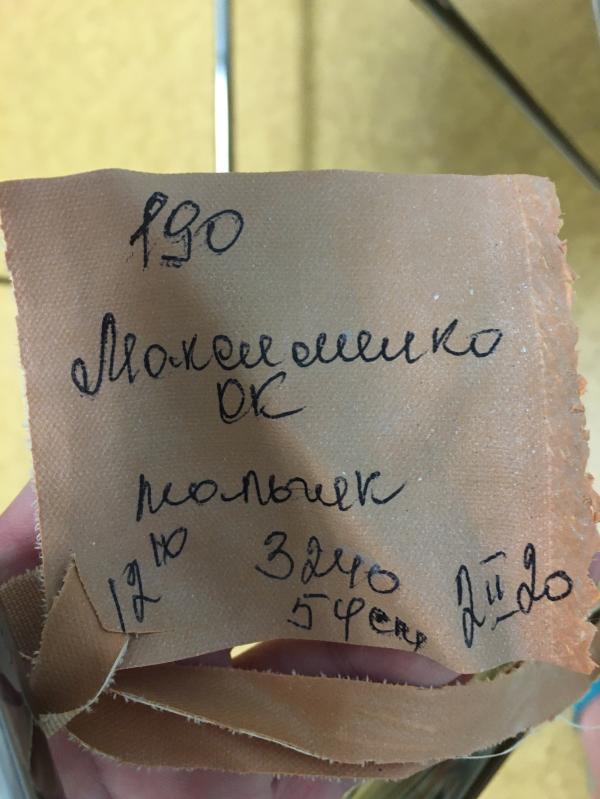 190
Максименко
ОК
мальчик
12 40 3240 2 II 20
54 см